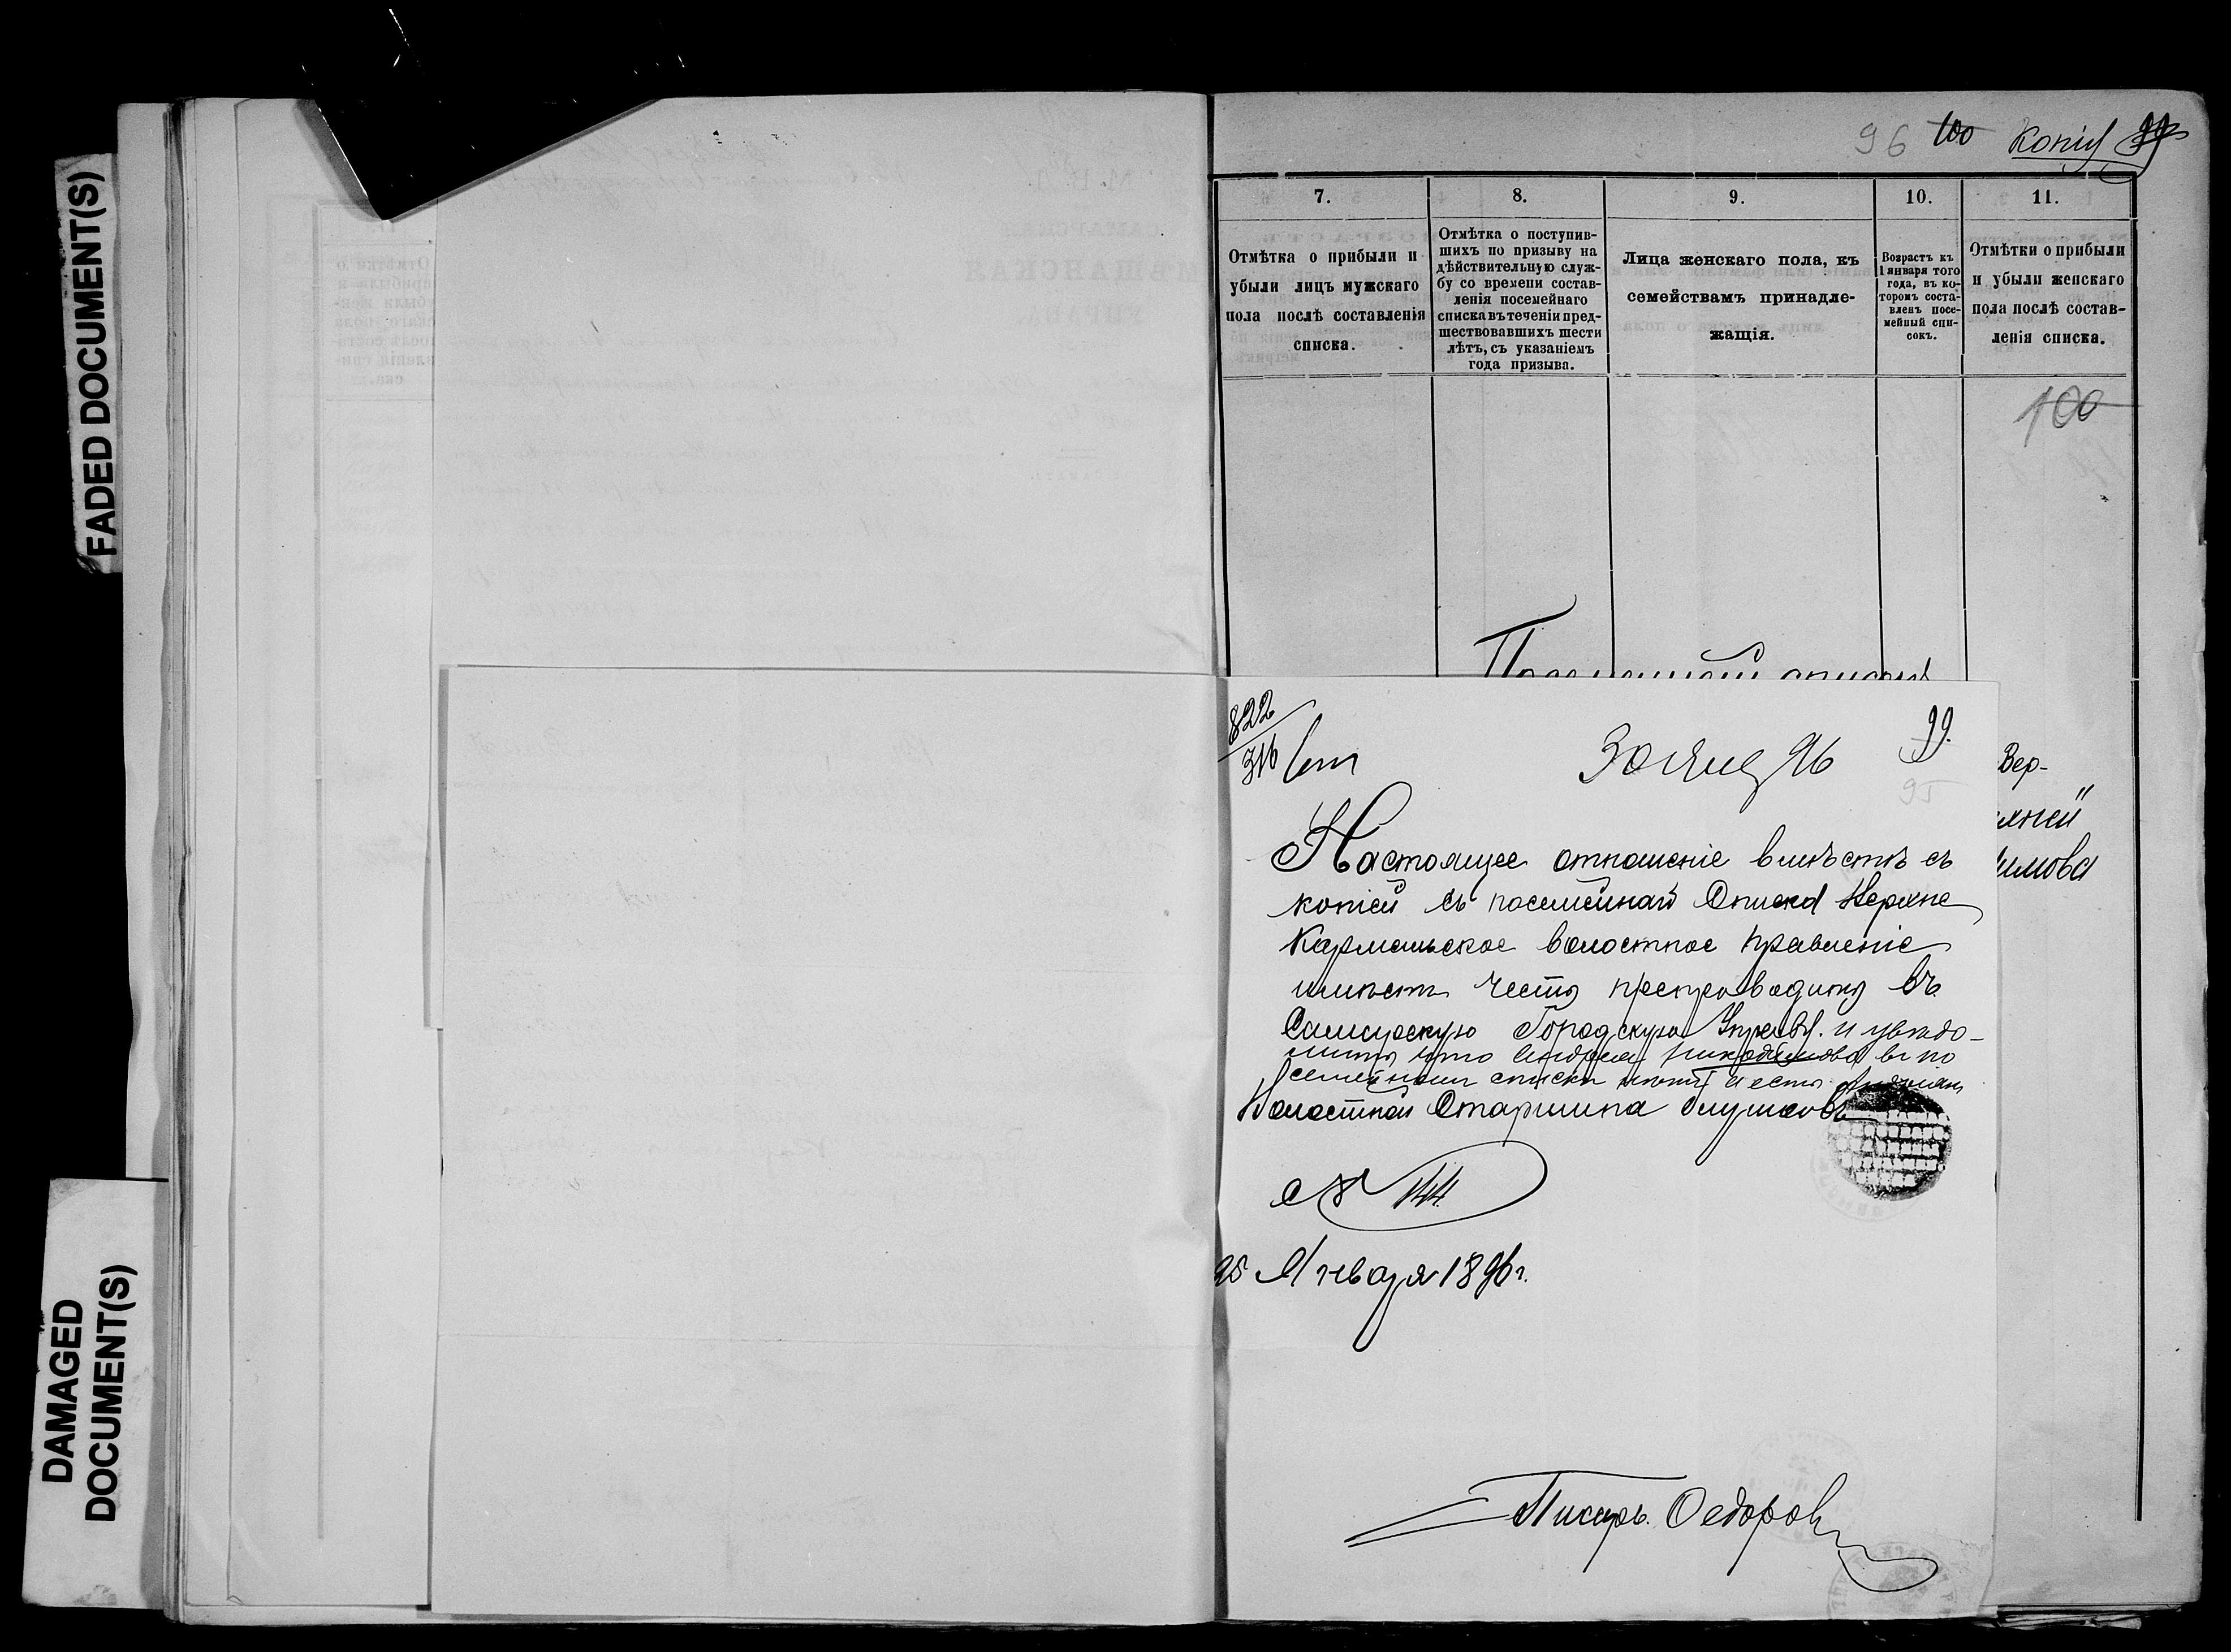 FADED DOCUMENT(S)
DAMAGED
DOCUMENT(S)
96 100 Копія 99
7.
Отмѣтка о прибыли и
убыли лицъ мужскаго
пола послѣ составленія
списка.
8.
Отмѣтка о поступив-
шихъ по призыву на
дѣйствительную служ-
бу со времени состав-
ленія посемейнаго
списка въ теченіи пред-
шествовавшихъ шести
лѣтъ, съ указаніемъ
года призыва.
9.
Лица женскаго пола, къ
семействамъ принадле-
жащія.
10.
Возрастъ къ
1 января того
года, въ ко-
торомъ соста-
вленъ посе-
мейный спи-
сокъ.
11.
Отмѣтки о прибыли
и убыли женскаго
пола послѣ состав-
ленія списка.
100
Посемейный списокъ
Вер-
хней
имова
822
316
30 Янв 96
99.
95
Настоящее отношеніе вмѣстѣ съ
копіей съ посемейнаго Списка Верхне
Кармальское волостное правленіе
имѣетъ честь препроводить въ
Самарскую Городскую Управу. и увѣдо-
мить что Андрея въ по
семейномъ списки нѣтъ а есть
Волостной Старшина Глушковъ
№ 144
25 Января 1896 г.
Писарь Федоровъ